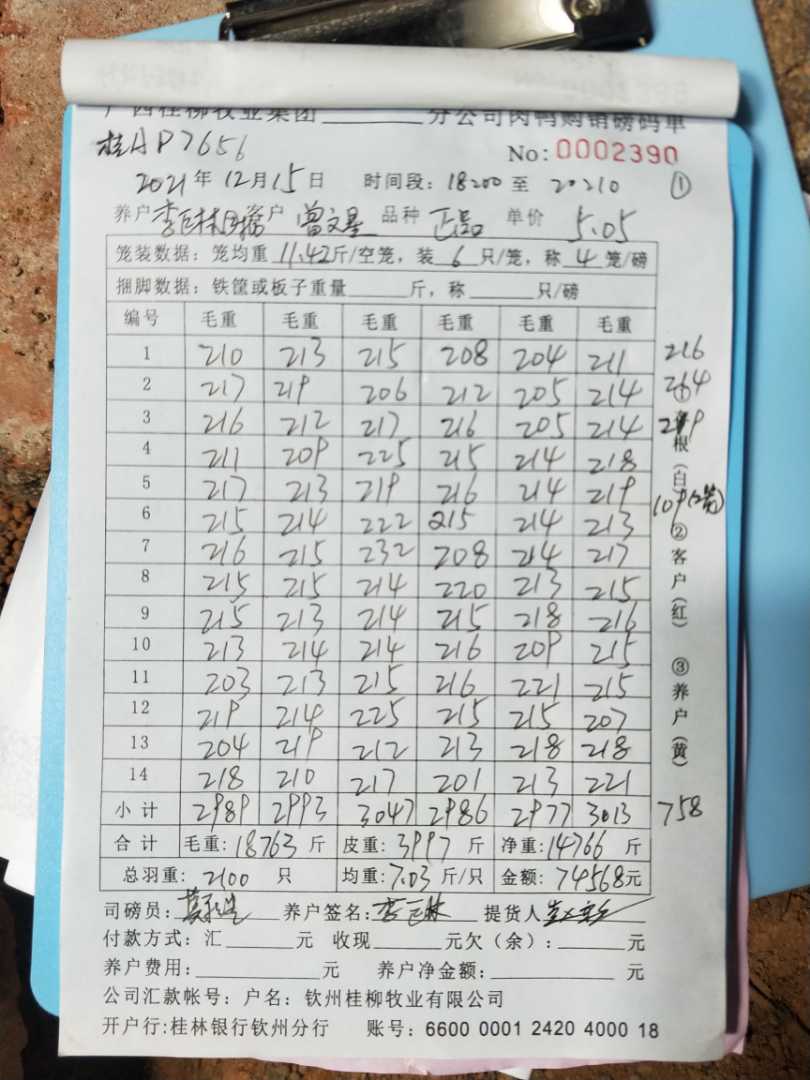 广西桂柳牧业集团______分公司肉鸭购销磅码单
桂AP7656
No: 0002390
2021年12月15日 时间段: 18200至20210 ①
养户 李巨林 客户 曾文星 品种 正品 单价 5.05
笼装数据: 笼均重 11.42斤/空笼, 装 6 只/笼, 称 4 笼/磅
捆脚数据: 铁筐或板子重量______斤, 称______只/磅
编号 毛重 毛重 毛重 毛重 毛重 毛重
1 210 213 215 208 204 211 216
2 217 219 206 212 205 214 264
3 216 212 217 216 205 214 219
4 211 209 225 215 214 218
5 217 213 219 216 214 219
6 215 214 222 215 214 213 109(2笼)
7 216 215 232 208 214 217
8 215 215 214 220 213 215
9 215 213 214 215 218 216
10 213 214 214 216 209 215
11 203 213 215 216 221 215
12 219 214 225 215 215 207
13 204 219 212 213 218 218
14 218 210 217 201 213 221
小计 2989 2993 3047 2986 2977 3013 758
合计 毛重: 18763 斤 皮重: 3997 斤 净重: 14766 斤
总羽重: 2100 只 均重: 7.03 斤/只 金额: 74568元
①根(白) ②客户(红) ③养户(黄)
司磅员: 养户签名: 李巨林 提货人
付款方式: 汇______元 收现______元欠(余): ______元
养户费用: ______元 养户净金额: ______元
公司汇款帐号: 户名: 钦州桂柳牧业有限公司
开户行:桂林银行钦州分行 账号: 6600 0001 2420 4000 18